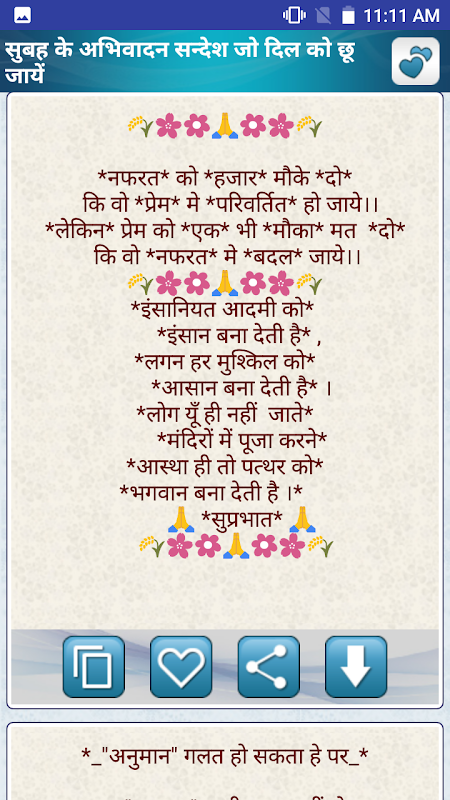 11:11 AM
सुबह के अभिवादन सन्देश जो दिल को छू
जायें
🌾🌸🌸🙏🌸🌸🌾
*नफरत* को *हजार* मौके *दो*
कि वो *प्रेम* मे *परिवर्तित* हो जाये।।
*लेकिन* प्रेम को *एक* भी *मौका* मत *दो*
कि वो *नफरत* मे *बदल* जाये।।
🌾🌸🌸🙏🌸🌸🌾
*इंसानियत आदमी को*
*इंसान बना देती है* ,
*लगन हर मुश्किल को*
*आसान बना देती है* ।
*लोग यूँ ही नहीं जाते*
*मंदिरों में पूजा करने*
*आस्था ही तो पत्थर को*
*भगवान बना देती है ।*
🙏 *सुप्रभात* 🙏
🌾🌸🌸🙏🌸🌸🌾
*_"अनुमान" गलत हो सकता हे पर_*